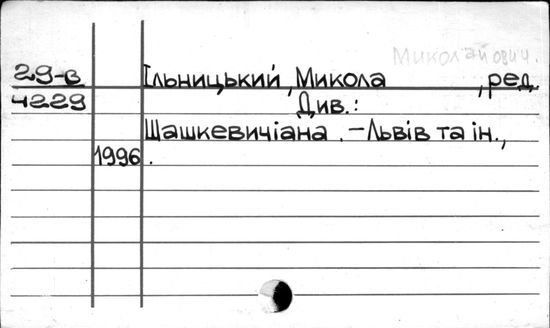 Миколайович.
29-в Ільницький, Микола , ред.
4229 Див.:
Шашкевичіана. - Львів та ін.,
1996.